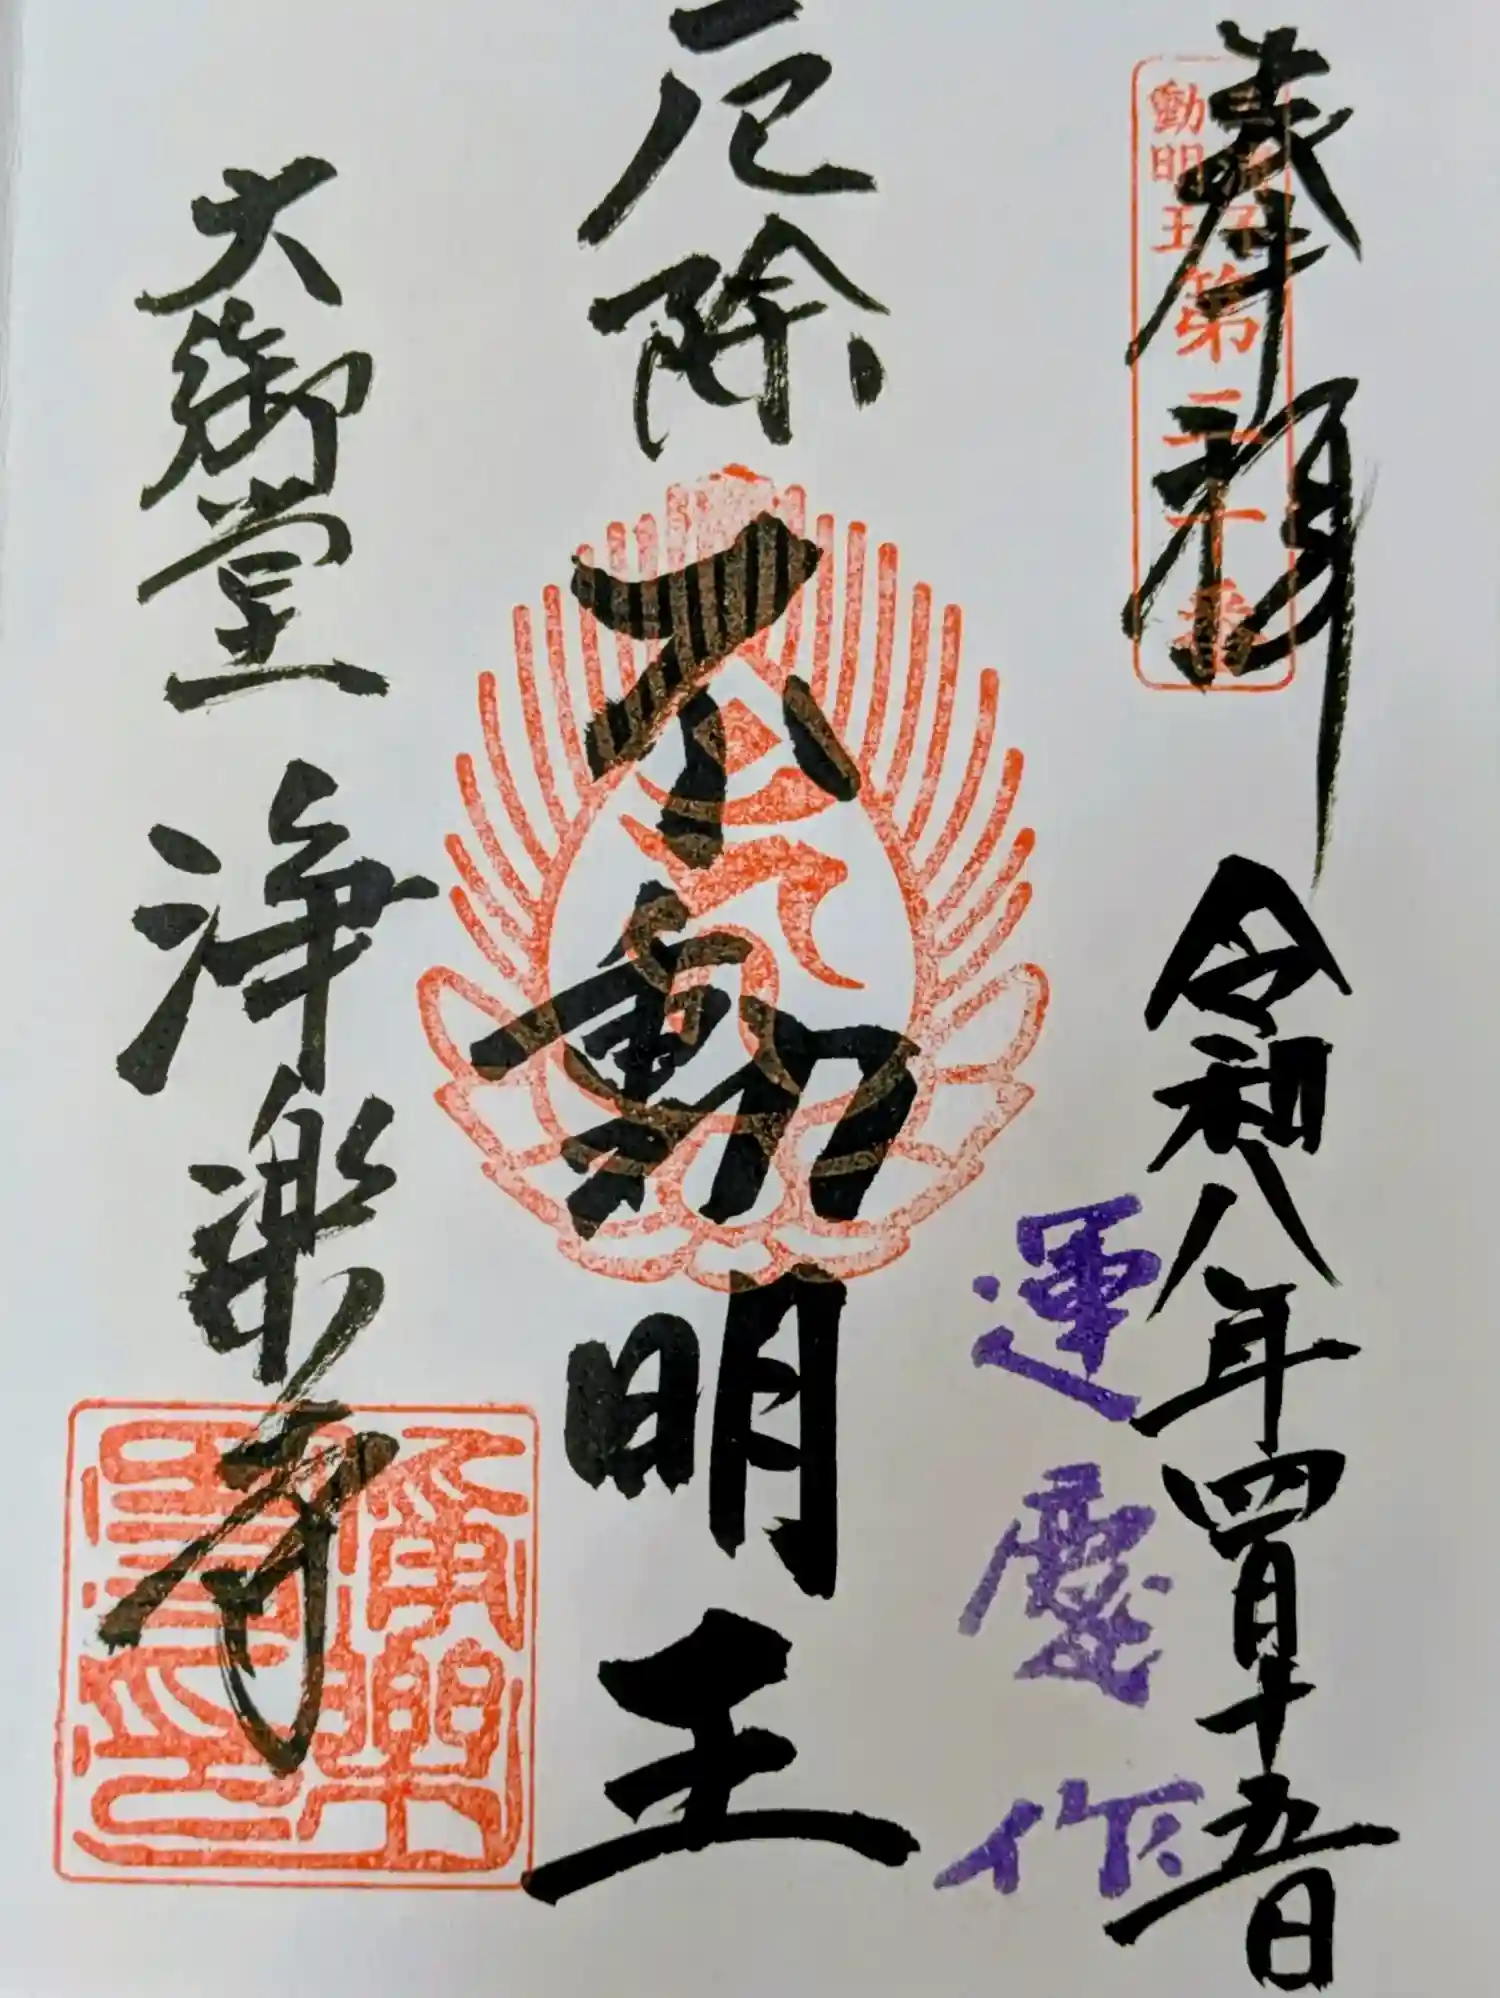 奉拝
第二十番
動明王
令和八年四月十五日
運慶作
厄除
不動明王
大御堂
浄楽寺